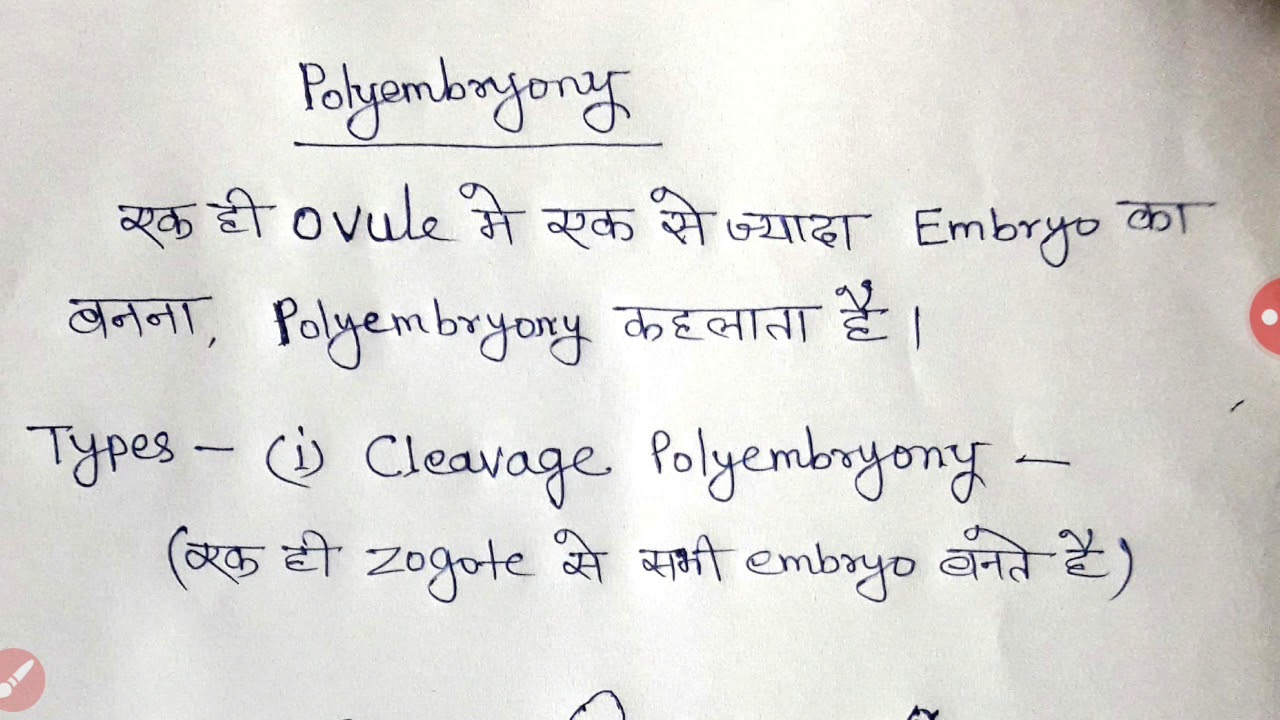 Polyembryony
एक ही Ovule मे एक से ज्यादा Embryo का
बनना, Polyembryony कहलाता है।
Types - (i) Cleavage Polyembryony -
(एक ही Zogote से सभी embryo बनते है)